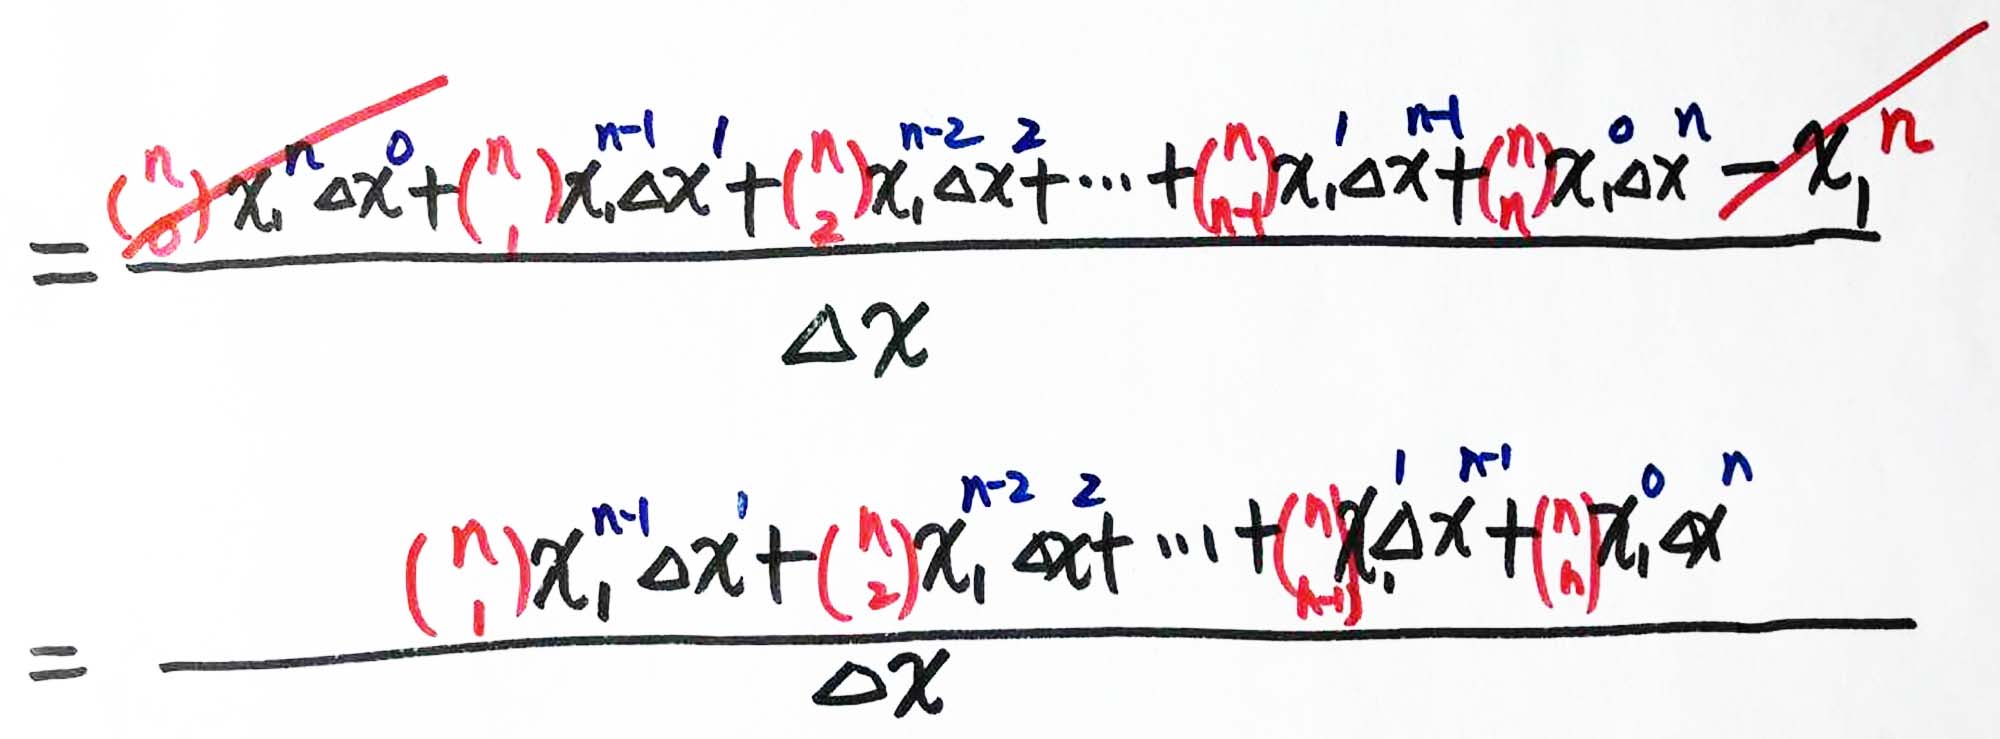 = \frac{\binom{n}{0} x_1^n \Delta x^0 + \binom{n}{1} x_1^{n-1} \Delta x^1 + \binom{n}{2} x_1^{n-2} \Delta x^2 + \cdots + \binom{n}{n-1} x_1^1 \Delta x^{n-1} + \binom{n}{n} x_1^0 \Delta x^n - x_1^n}{\Delta x}
= \frac{\binom{n}{1} x_1^{n-1} \Delta x^1 + \binom{n}{2} x_1^{n-2} \Delta x^2 + \cdots + \binom{n}{n-1} x_1^1 \Delta x^{n-1} + \binom{n}{n} x_1^0 \Delta x^n}{\Delta x}